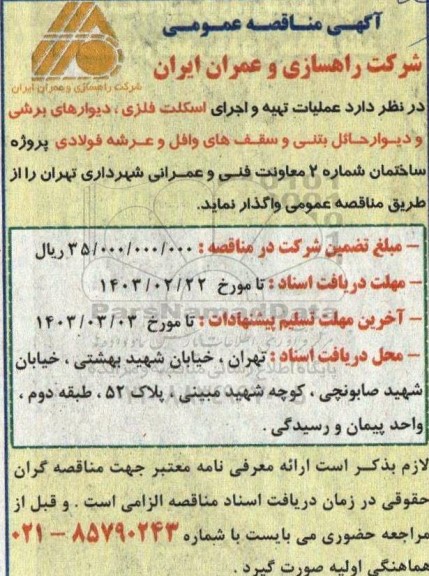 آگهی مناقصه عمومی
شرکت راهسازی و عمران ایران
شرکت راهسازی و عمران ایران
در نظر دارد عملیات تهیه و اجرای اسکلت فلزی ، دیوارهای برشی
و دیوارحائل بتنی و سقف های وافل و عرشه فولادی پروژه
ساختمان شماره ۲ معاونت فنی و عمرانی شهرداری تهران را از
طریق مناقصه عمومی واگذار نماید.
– مبلغ تضمین شرکت در مناقصه : ۳۵/۰۰۰/۰۰۰/۰۰۰ ریال
– مهلت دریافت اسناد : تا مورخ ۱۴۰۳/۰۲/۲۲
– آخرین مهلت تسلیم پیشنهادات : تا مورخ ۱۴۰۳/۰۳/۰۳
– محل دریافت اسناد : تهران ، خیابان شهید بهشتی ، خیابان
شهید صابونچی ، کوچه شهید مبینی ، پلاک ۵۲ ، طبقه دوم ،
واحد پیمان و رسیدگی .
لازم بذکر است ارائه معرفی نامه معتبر جهت مناقصه گران
حقوقی در زمان دریافت اسناد مناقصه الزامی است . و قبل از
مراجعه حضوری می بایست با شماره ۸۵۷۹۰۲۴۳ – ۰۲۱
هماهنگی اولیه صورت گیرد .
ParsNamadData